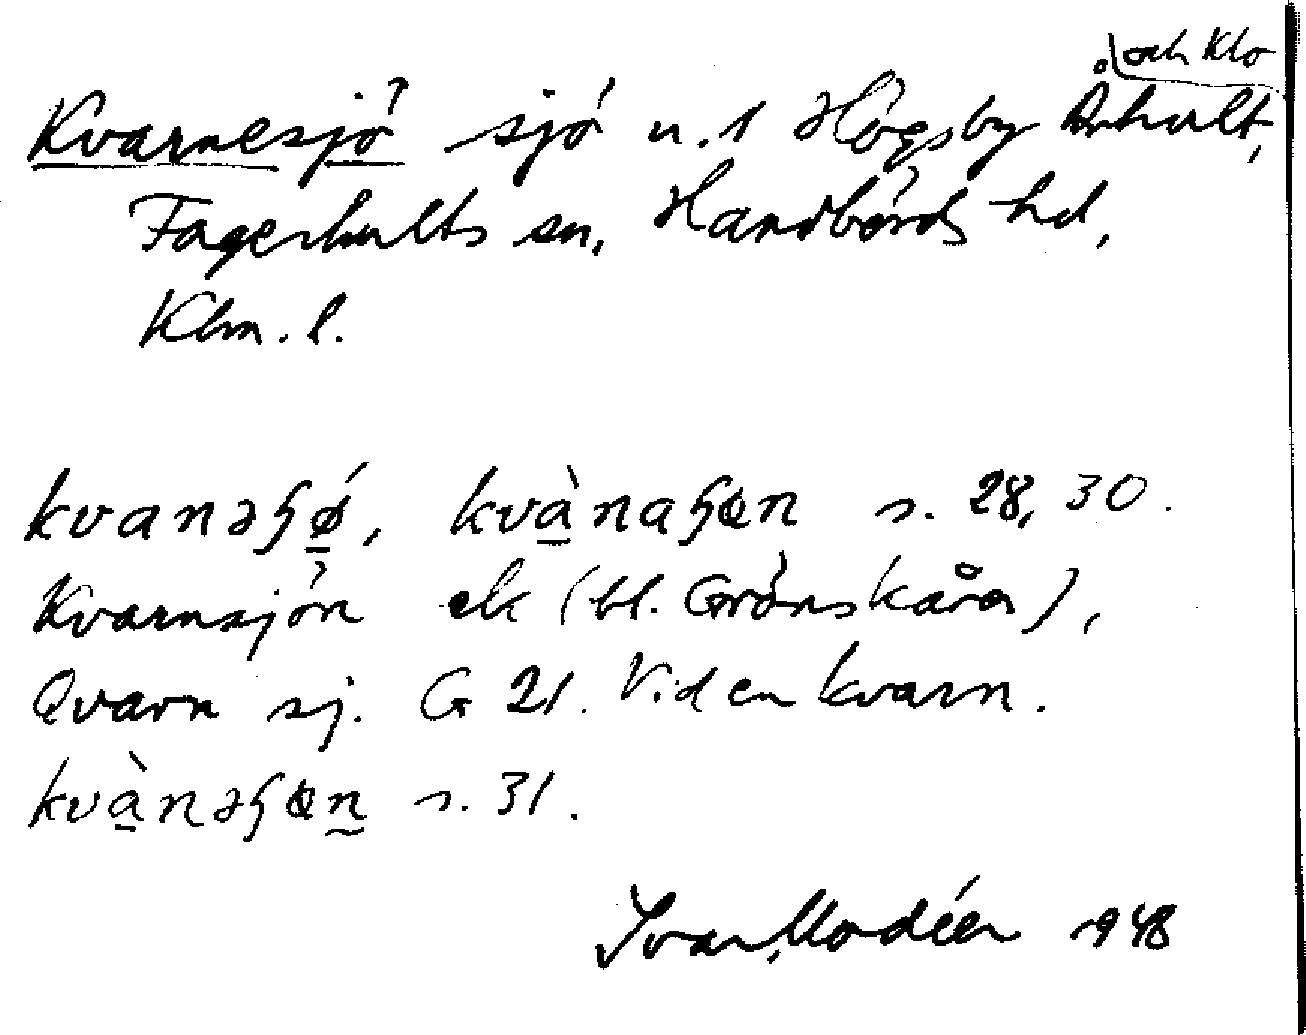 och Klo
Kvarnesjö sjö u. 1 Högsby Århult,
Fagerhults sn, Handbörds hd,
Klm. l.
kvanəɧø, kvànaɧøn s. 28, 30.
Kvarnsjön ek (bl. Grönskåra),
Qvarn sj. G 21. Vid en kvarn.
kvànəɧøn s. 31.
Ivar Modéer 1948